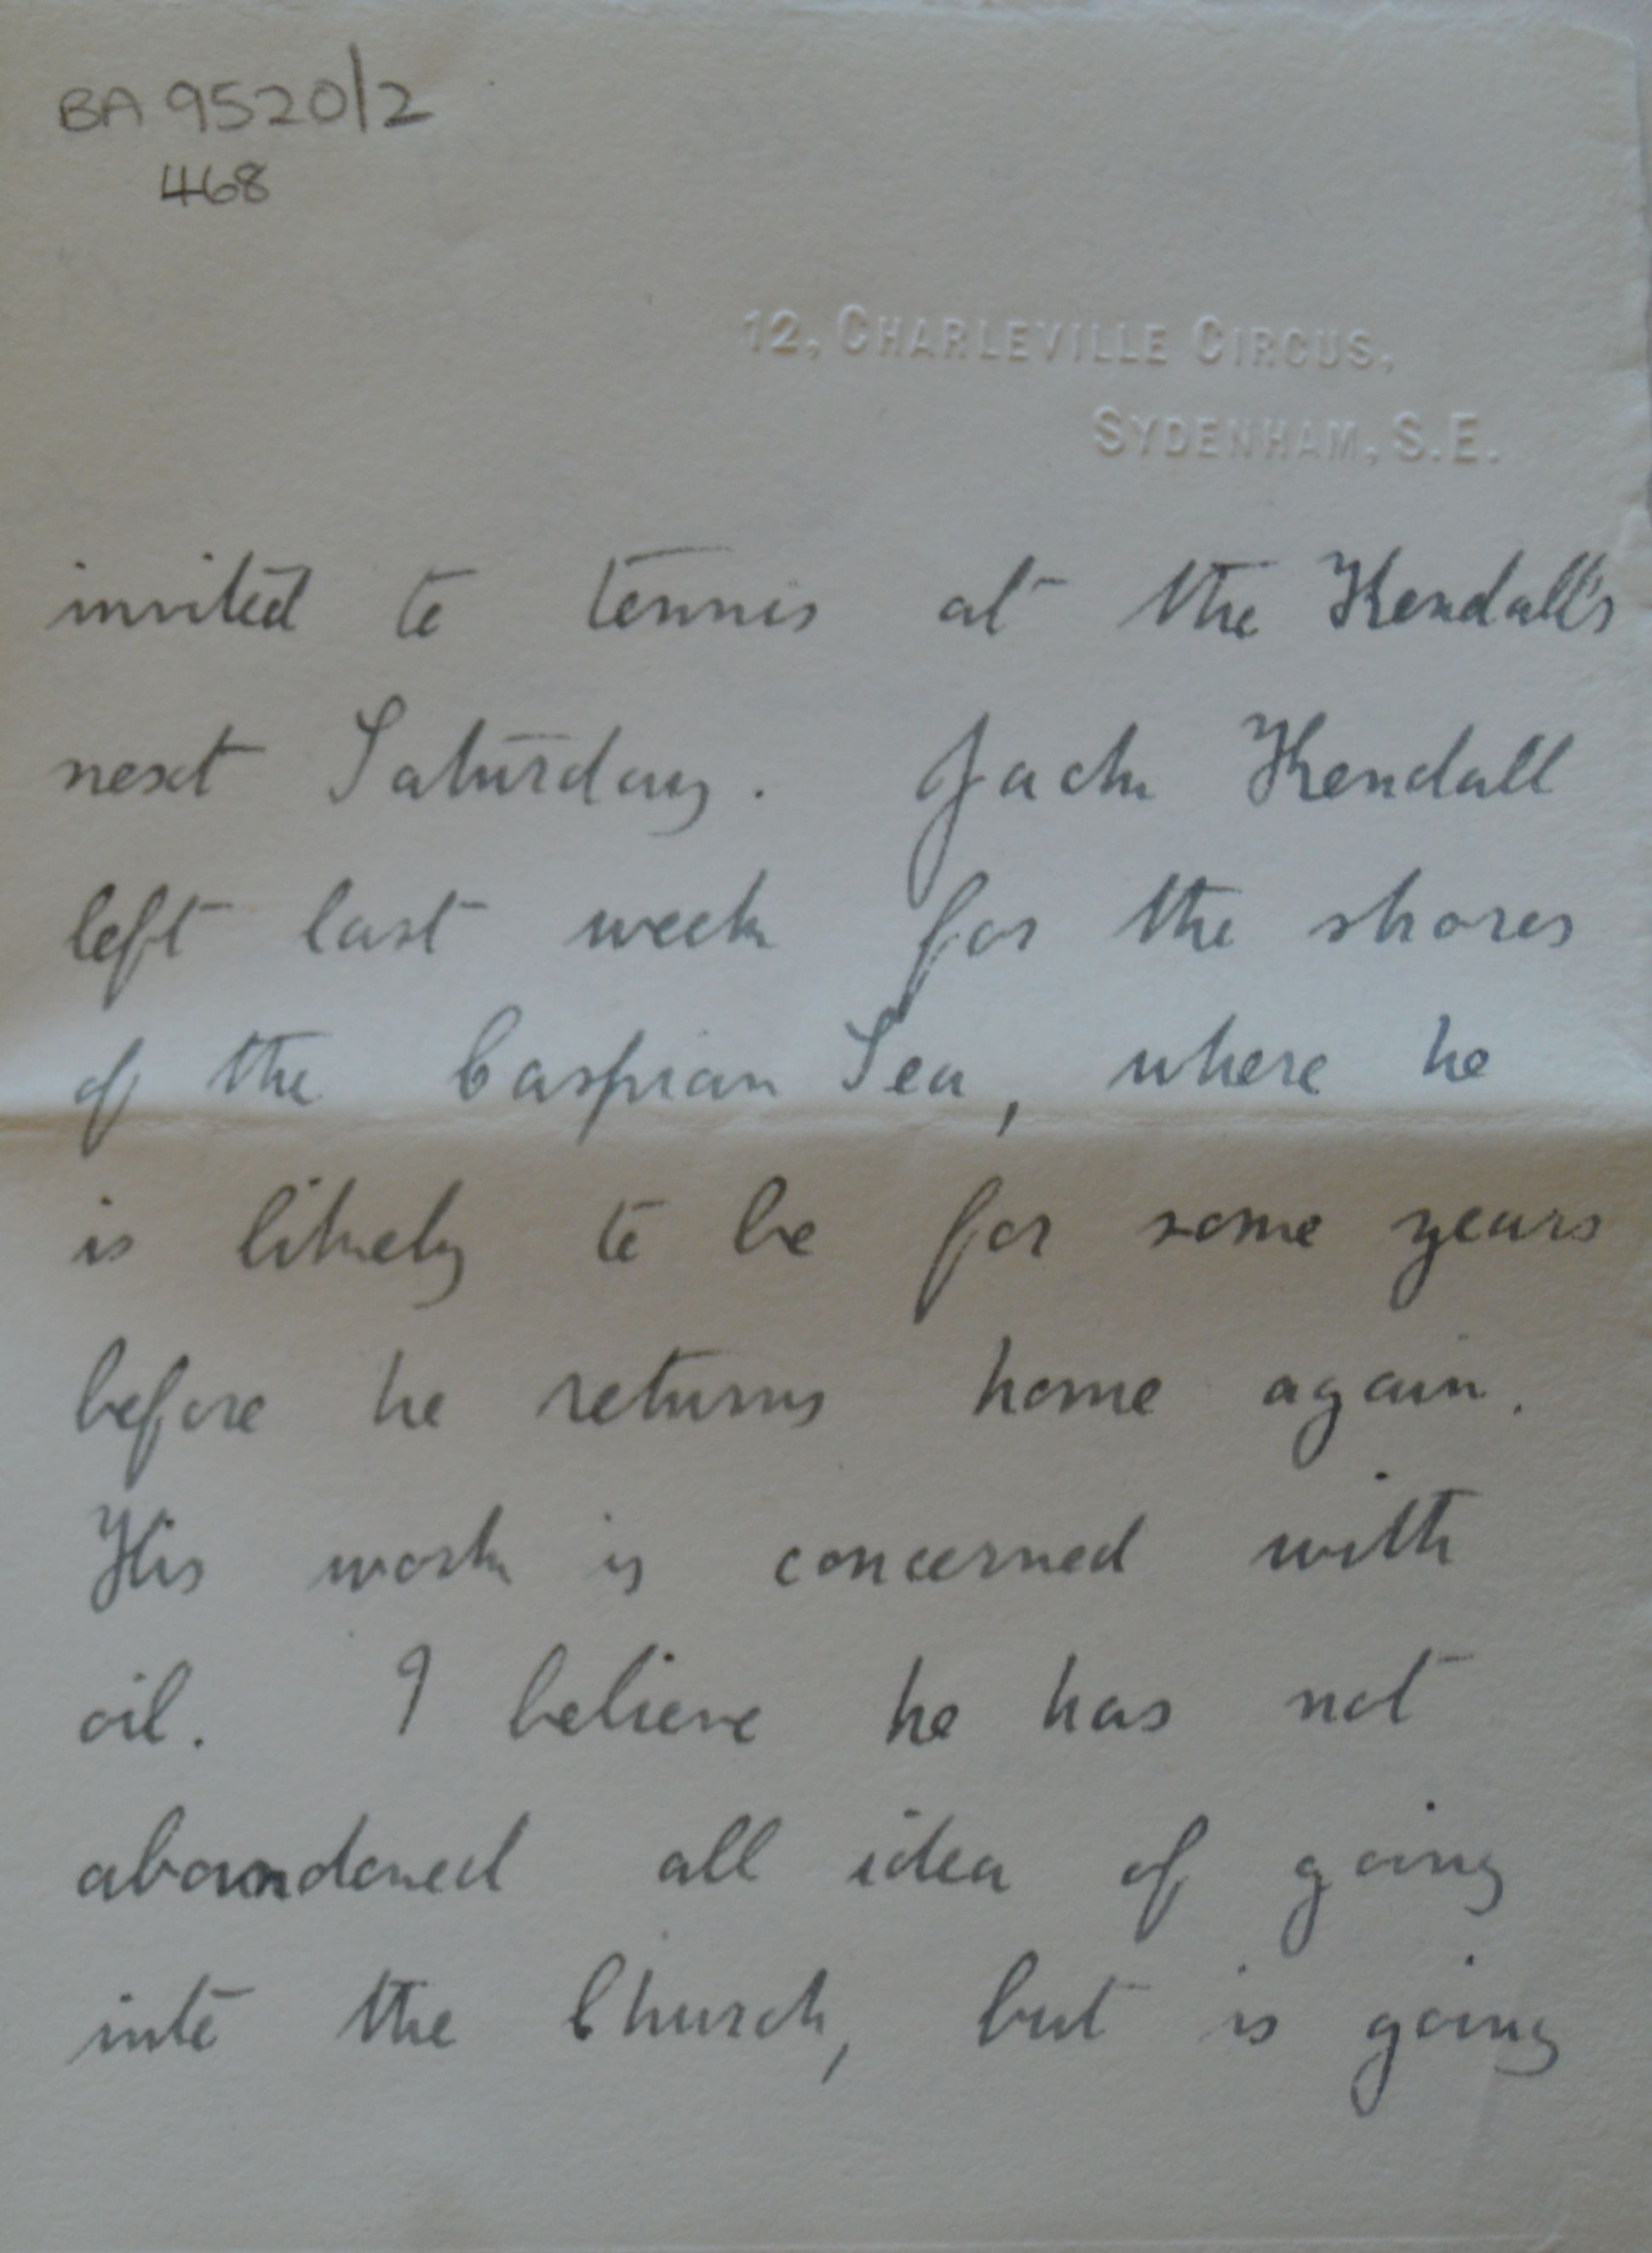 BA 9520/2
468
12, CHARLEVILLE CIRCUS,
SYDENHAM, S.E.
invited to tennis at the Kendall's
next Saturday. Jack Kendall
left last week for the shores
of the Caspian Sea, where he
is likely to be for some years
before he returns home again.
His work is concerned with
oil. I believe he has not
abandoned all idea of going
into the Church, but is going